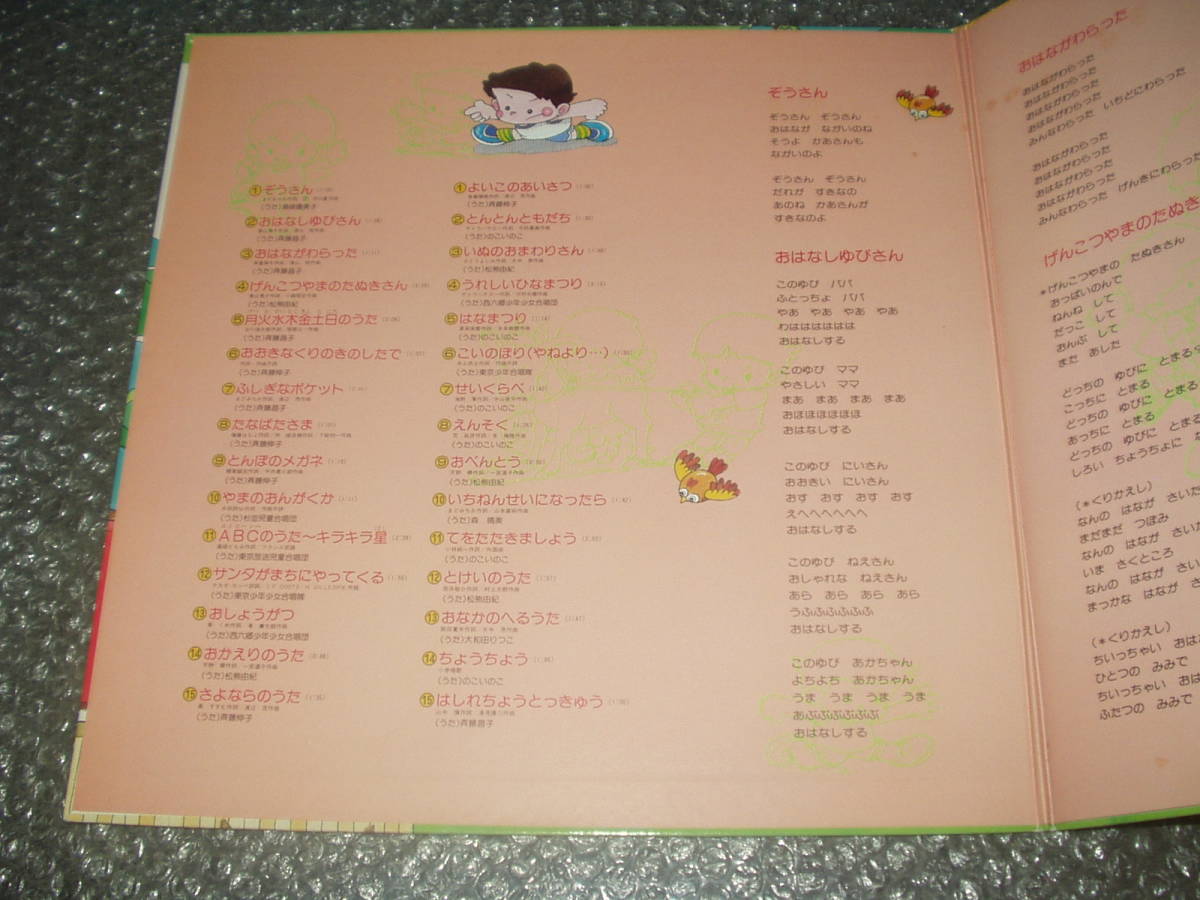 ①ぞうさん
②おはなしゆびさん
(うた)斉藤昌子
③おはながわらった
(うた)斉藤昌子
④げんこつやまのたぬきさん
(うた)松熊由紀
⑤月火水木金土日のうた
(うた)斉藤昌子
⑥おおきなくりのきのしたで
(うた)斉藤伸子
⑦ふしぎなポケット
(うた)斉藤昌子
⑧たなばたさま
(うた)斉藤伸子
⑨とんぼのメガネ
(うた)斉藤伸子
⑩やまのおんがくか
(うた)杉並児童合唱団
⑪ABCのうた〜キラキラ星
(うた)東京放送児童合唱団
⑫サンタがまちにやってくる
(うた)東京少年少女合唱隊
⑬おしょうがつ
(うた)西六郷少年少女合唱団
⑭おかえりのうた
(うた)松熊由紀
⑮さよならのうた
(うた)斉藤伸子
①よいこのあいさつ
(うた)斉藤伸子
②とんとんともだち
(うた)のこいのこ
③いぬのおまわりさん
(うた)松熊由紀
④うれしいひなまつり
(うた)西六郷少年少女合唱団
⑤はなまつり
(うた)のこいのこ
⑥こいのぼり(やねより…)
(うた)東京少年少女合唱隊
⑦せいくらべ
(うた)のこいのこ
⑧えんそく
(うた)のこいのこ
⑨おべんとう
(うた)松熊由紀
⑩いちねんせいになったら
(うた)森 晴美
⑪てをたたきましょう
(うた)のこいのこ
⑫とけいのうた
(うた)松熊由紀
⑬おなかのへるうた
(うた)大和田りつこ
⑭ちょうちょう
(うた)のこいのこ
⑮はしれちょうとっきゅう
(うた)斉藤昌子
ぞうさん
ぞうさん ぞうさん
おはなが ながいのね
そうよ かあさんも
ながいのよ
ぞうさん ぞうさん
だれが すきなの
あのね かあさんが
すきなのよ
おはなしゆびさん
このゆび パパ
ふとっちょ パパ
やあ やあ やあ やあ
わはははははは
おはなしする
このゆび ママ
やさしい ママ
まあ まあ まあ まあ
おほほほほほほ
おはなしする
このゆび にいさん
おおきい にいさん
おす おす おす おす
えへへへへへへ
おはなしする
このゆび ねえさん
おしゃれな ねえさん
あら あら あら あら
うふふふふふふ
おはなしする
このゆび あかちゃん
よちよち あかちゃん
うま うま うま うま
あぶぶぶぶぶぶ
おはなしする
おはながわらった
おはながわらった
おはながわらった
おはながわらった
おはながわらった
みんなわらった いちどにわらった
おはながわらった
おはながわらった
おはながわらった
おはながわらった
みんなわらった げんきにわらった
げんこつやまのたぬき
*げんこつやまの たぬきさん
おっぱいのんで
ねんね して
だっこ して
おんぶ して
また あした
どっちの ゆびに とまる
こっちに とまる
どっちの ゆびに とまる
あっちに とまる
どっちの ゆびに とまる
しろい ちょうちょに
(*くりかえし)
なんの はなが さいた
まだまだ つぼみ
なんの はなが さい
いま さくところ
なんの はなが さい
まっかな はなが さ
(*くりかえし)
ちいっちゃい おは
ひとつの みみで
ちいっちゃい おは
ふたつの みみで